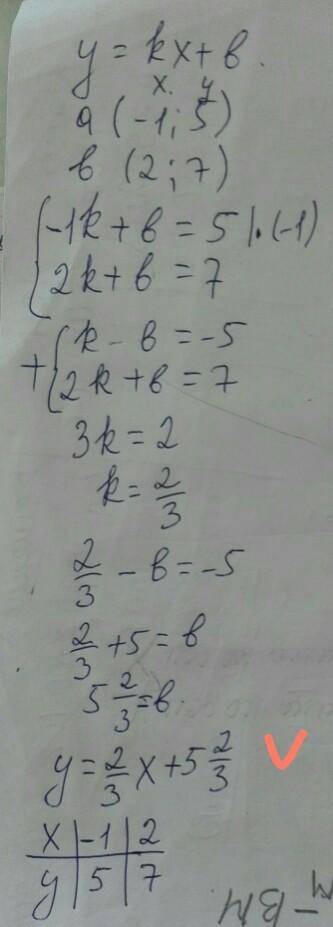 y = kx + b.
x. y
a (-1; 5)
в (2; 7)
{-1k + b = 5 | · (-1)
2k + b = 7
+ {k - b = -5
2k + b = 7
3k = 2
k = 2/3
2/3 - b = -5
2/3 + 5 = b
5 2/3 = b.
y = 2/3 x + 5 2/3
x | -1 | 2
y | 5 | 7